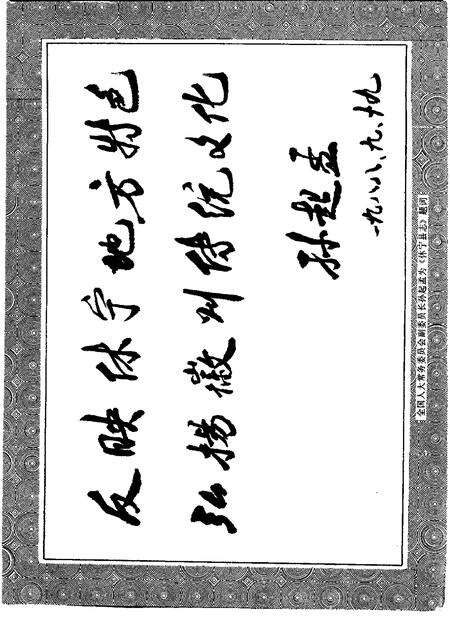 反映休宁地方特色
弘扬徽州传统文化
孙起孟
一九八八、九、十九
全国人大常务委员会副委员长孙起孟为《休宁县志》题词